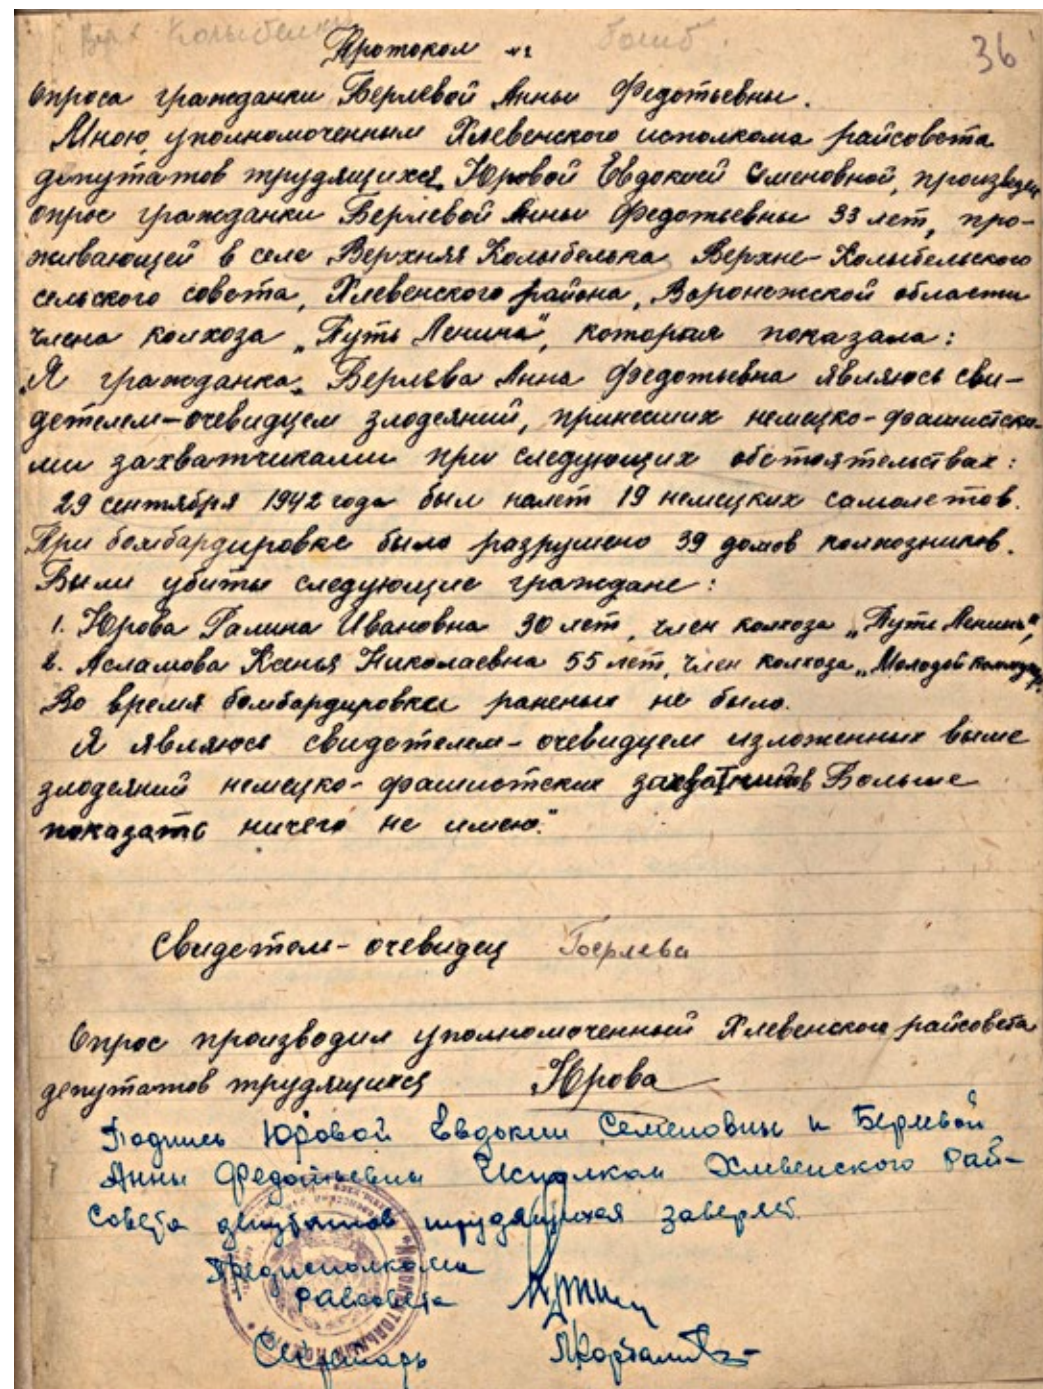 Верх Колыбелка бомб. 36
Протокол №
Опроса гражданки Берлевой Анны Федотьевны.
Мною, уполномоченным Хлевенского исполкома райсовета
депутатов трудящихся, Юровой Евдокией Семеновной, произведен
опрос гражданки Берлевой Анны Федотьевны 33 лет, про-
живающей в селе Верхняя Колыбелька Верхне-Колыбельского
сельского совета, Хлевенского района, Воронежской области
члена колхоза „Путь Ленина“, которая показала:
„Я гражданка, Берлева Анна Федотьевна являюсь сви-
детелем-очевидцем злодеяний, принесших немецко-фашистски-
ми захватчиками при следующих обстоятельствах:
29 сентября 1942 года был налет 19 немецких самолетов.
При бомбардировке было разрушено 39 домов колхозников.
Были убиты следующие граждане:
1. Юрова Галина Ивановна 30 лет, член колхоза „Путь Ленина“,
2. Асламова Ксенья Николаевна 55 лет, член колхоза „Молодой
Во время бомбардировки раненых не было.
Я являюсь свидетелем-очевидцем изложенных выше
злодеяний немецко-фашистских захватчиков Больше
показать ничего не имею.“
Свидетель-очевидец Берлева
Опрос производил уполномоченный Хлевенского райсовета
депутатов трудящихся Юрова
Подпись Юровой Евдокии Семеновны и Берлевой
Анны Федотьевны Исполком Хлевенского рай-
совета депутатов трудящихся заверяет.
Предисполкома
райсовета
Секретарь